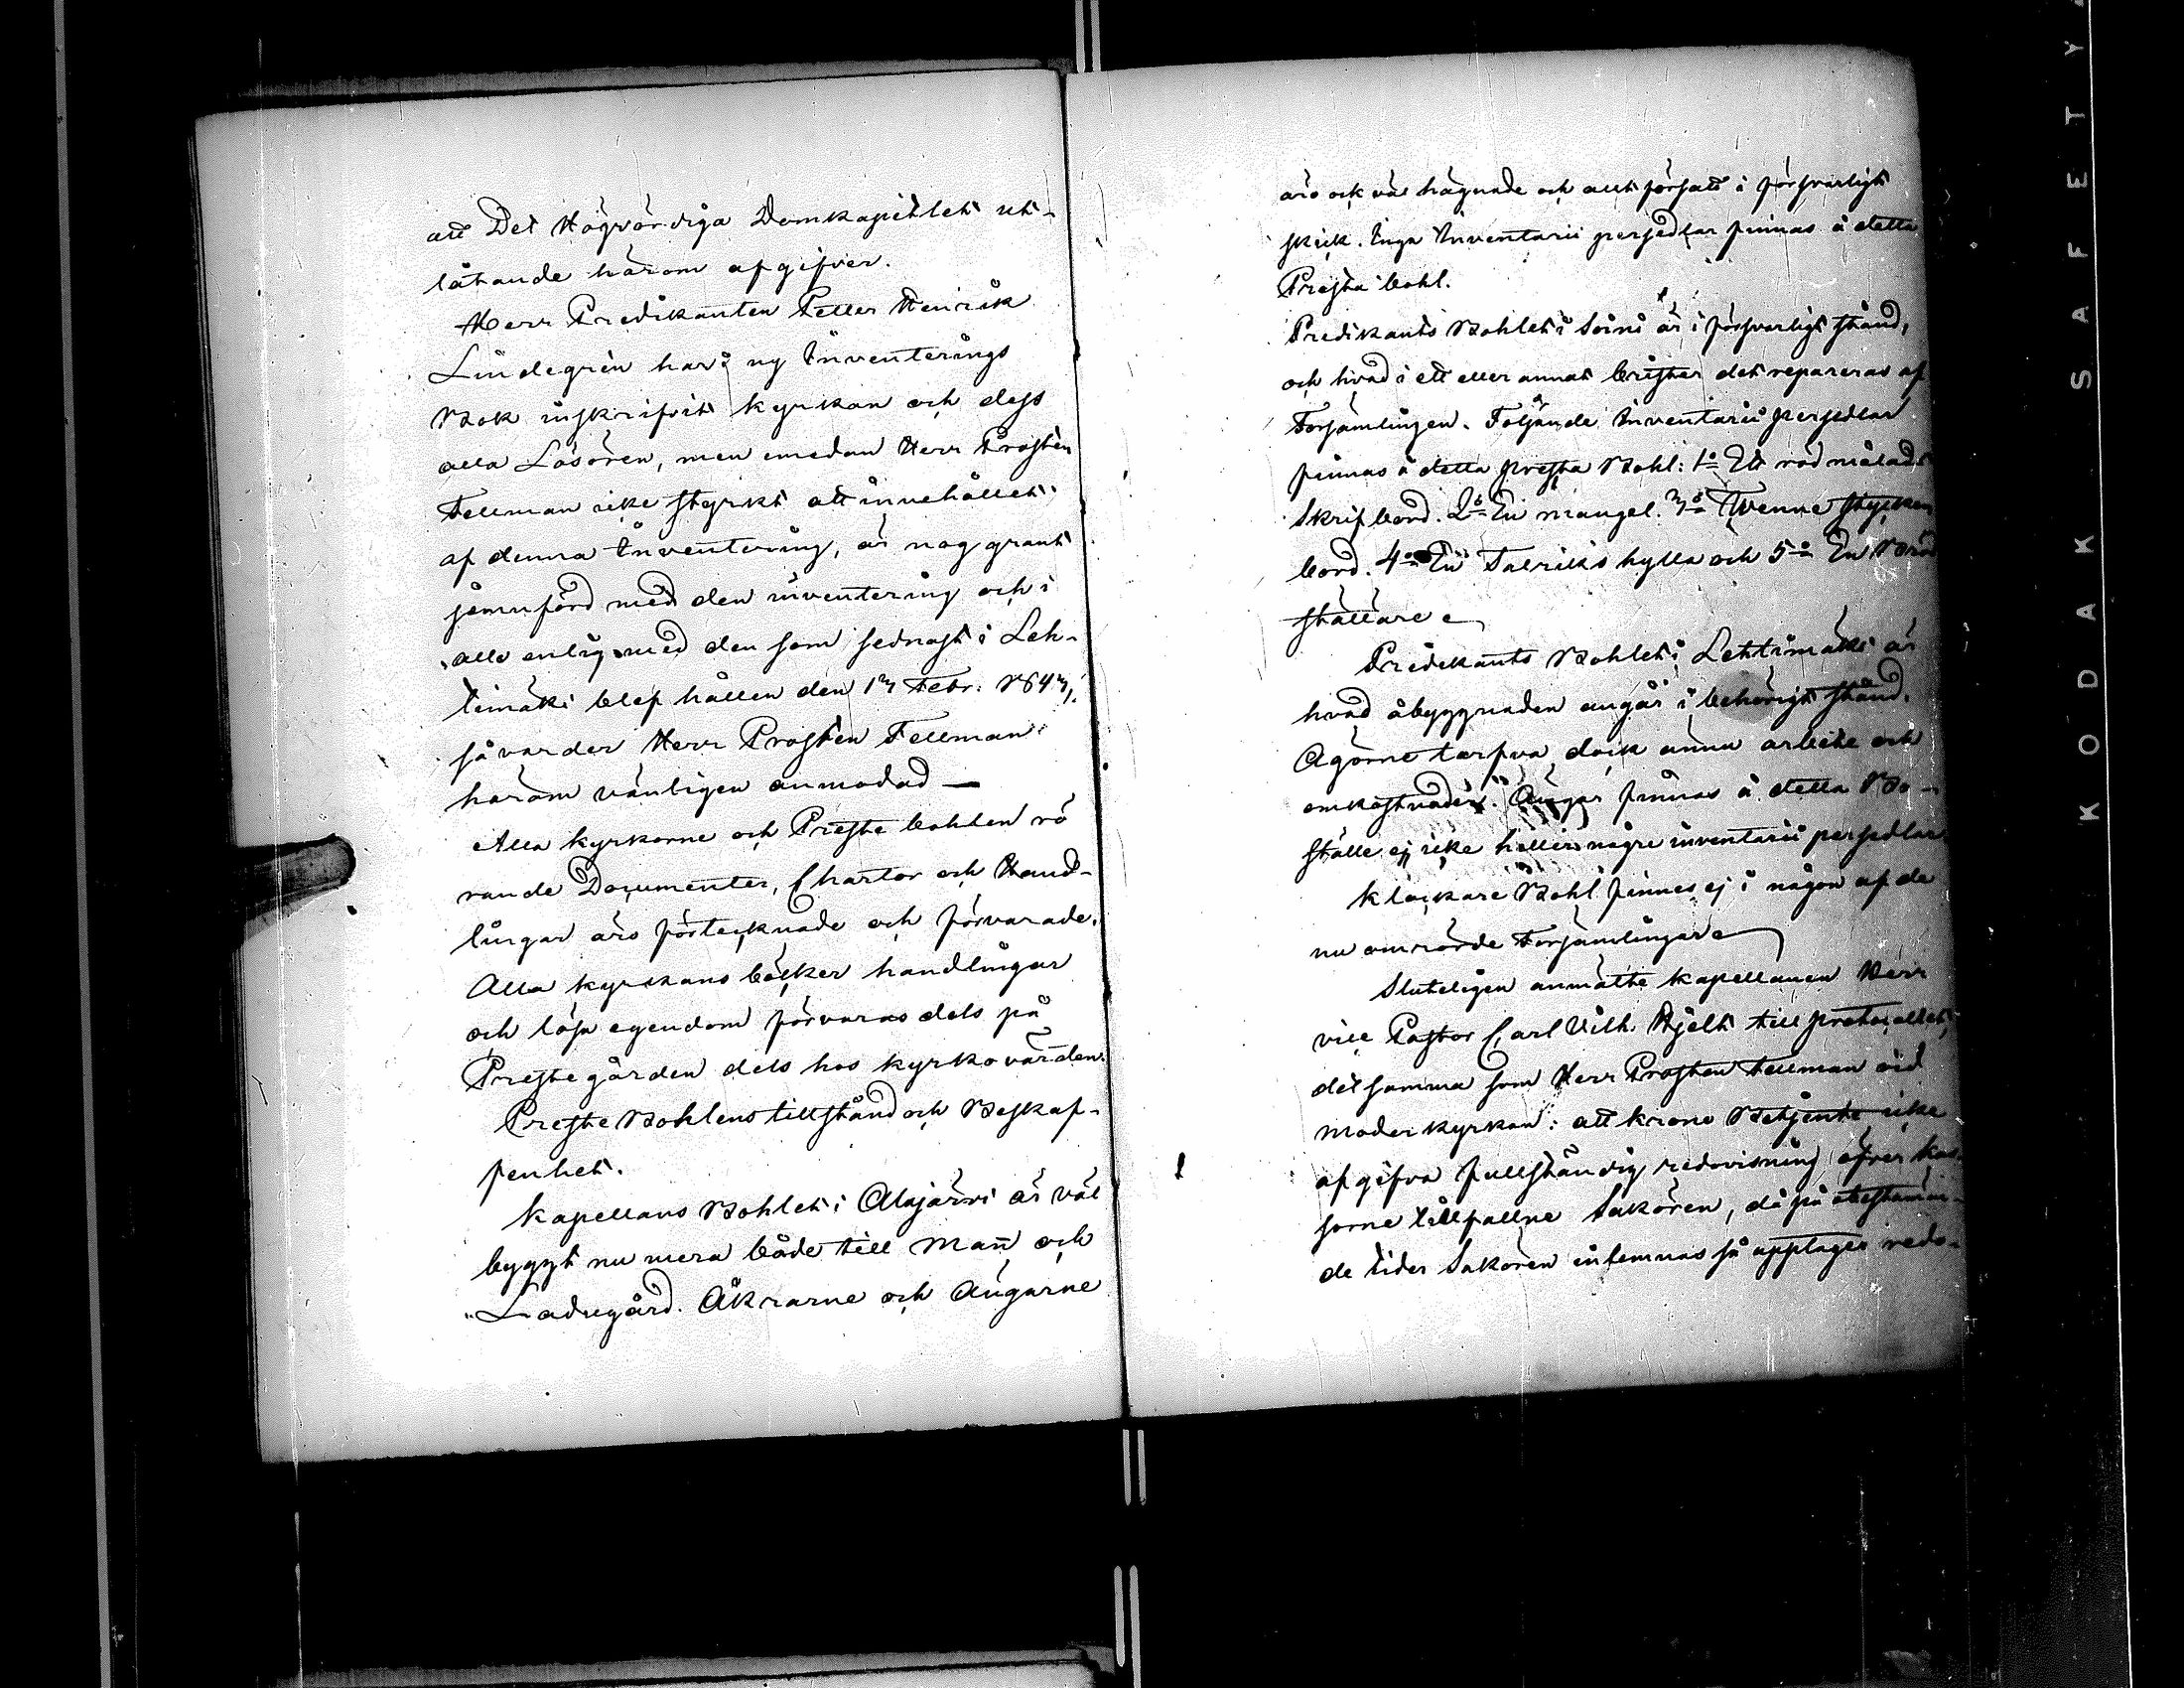 att Det Högvördiga Domkapitlets ut-
låtande härom afgifver.
Herr Predikanten Petter Henrik
Lindegrén har i ny Inventerings
Bok inskrifvit kyrkan och dess
alla Lösören, men emedan Herr Prosten
Fellman icke styrkt att innehållet
af denna Inventering, är noggrant
jemnförd med den inventering och i
allo enlig med den som sednast i Leh-
timäki blef hållen den 13 Febr. 1843,
så varder Herr Prosten Fellman
härom vänligen anmodad —
Alla kyrkorne och Preste bohlen rö
rande Documenter, Chartor och Hand-
lingar äro förtecknade och förvarade.
Alla kyrkans böcker handlingar
och lösa egendom förvaras dels på
Prestegården dels hos kyrkovärden.
Preste Bohlens tillstånd och Beskaf-
fenhet.
Kapellans Bohlet i Alajärvi är väl
byggt nu mera både till Man och
Ladugård. Åkrarne och Ängarne
äro ock väl hägnade och allt försatt i försvarligt
skick. Inga Inventarii persedlar finnas å detta
Presta bohl.
Predikants Bohlet i Soini är i försvarligt stånd,
och hvad i ett eller annat brister det repareras af
Församlingen. Följande Inventarii persedlar
finnas å detta presta Bohl: 1o Ett röd måladt
Skrifbord. 2o En mangel. 3o Tvenne stycken
bord. 4o En Talriks hylla och 5o En
ställare
Predikants Bohlet i Lehtimäki är
hvad åbyggnaden angår i behörigt stånd.
Ägorne tarfva dock ännu arbete och
omkostnader. Ängar finnas å detta Bo-
ställe ej icke heller några inventarii persedlar
Klockare Bohl finnes ej i någon af de
nu omrörde Församlingar
Sluteligen anmälte kapellanen Herr
vice Pastor Carl Vilh. Hjelt till protocollet,
det samma som Herr Prosten Fellman vid
Moderkyrkan: att krono Betjente icke
afgifva fullständig redovisning öfver kas-
sorne tillfallne Saköre, då på obestämm-
de tider Sakören inlemnas så upptages redo-